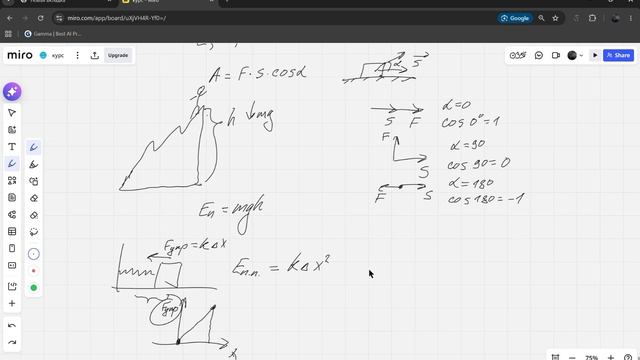 miro.com/app/board/uXjVH4R-Yf0=/
Google
Gamma | Best AI Pr...
miro
курс
Upgrade
Share
A = F · s · cosα
α
S
S F
α=0
cos 0°=1
h
mg
F
S
α=90
cos 90=0
F S
α=180
cos 180=-1
Eп = mgh
Fупр=kΔx
Eп.п. = kΔx²
Fупр
x
75%